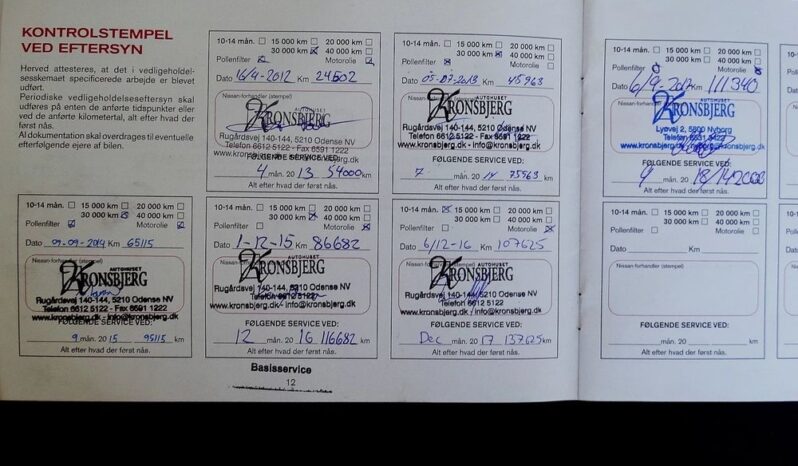 KONTROLSTEMPEL
VED EFTERSYN
Herved attesteres, at det i vedligeholdel-
sesskemaet specificerede arbejde er blevet
udført.
Periodiske vedligeholdelseseftersyn skal
udføres på enten de anførte tidspunkter eller
ved de anførte kilometertal, alt efter hvad der
først nås.
Al dokumentation skal overdrages til eventuelle
efterfølgende ejere af bilen.
10-14 mån. 15 000 km 20 000 km
30 000 km 40 000 km
Pollenfilter Motorolie
Dato 16/4-2012 Km 24502
Nissan-forhandler (stempel)
AUTOHUSET
KRONSBJERG
Rugårdsvej 140-144, 5210 Odense NV
Telefon 6612 5122 - Fax 6591 1222
www.kronsbjerg.dk - info@kronsbjerg.dk
FØLGENDE SERVICE VED:
4 mån. 20 13 54000 km
Alt efter hvad der først nås.
10-14 mån. 15 000 km 20 000 km
30 000 km 40 000 km
Pollenfilter Motorolie
Dato 05-07-2013 Km 45963
Nissan-forhandler (stempel)
AUTOHUSET
KRONSBJERG
Rugårdsvej 140-144, 5210 Odense NV
Telefon 6612 5122 - Fax 6591 1222
www.kronsbjerg.dk - info@kronsbjerg.dk
FØLGENDE SERVICE VED:
7 mån. 20 14 75563 km
Alt efter hvad der først nås.
10-14 mån. 15 000 km 20 000 km
30 000 km 40 000 km
Pollenfilter Motorolie
Dato 6/9-2017 Km 111340
Nissan-forhandler (stempel)
AUTOHUSET
KRONSBJERG
Lysvej 2, 5800 Nyborg
Telefon 6531
www.kronsbjerg.dk
FØLGENDE SERVICE VED:
9 mån. 20 18
Alt efter hvad der først nås.
10-14 mån. 15 000 km 20 000 km
30 000 km 40 000 km
Pollenfilter Motorolie
Dato 09-09-2014 Km 65115
Nissan-forhandler (stempel)
AUTOHUSET
KRONSBJERG
Rugårdsvej 140-144, 5210 Odense NV
Telefon 6612 5122 - Fax 6591 1222
www.kronsbjerg.dk - info@kronsbjerg.dk
FØLGENDE SERVICE VED:
9 mån. 20 15 95115 km
Alt efter hvad der først nås.
10-14 mån. 15 000 km 20 000 km
30 000 km 40 000 km
Pollenfilter Motorolie
Dato 1-12-15 Km 86682
Nissan-forhandler (stempel)
AUTOHUSET
KRONSBJERG
Rugårdsvej 140-144, 5210 Odense NV
Telefon 6612 5122 - Fax 6591 1222
www.kronsbjerg.dk - info@kronsbjerg.dk
FØLGENDE SERVICE VED:
12 mån. 20 16 116682 km
Alt efter hvad der først nås.
10-14 mån. 15 000 km 20 000 km
30 000 km 40 000 km
Pollenfilter Motorolie
Dato 6/12-16 Km 107625
Nissan-forhandler (stempel)
AUTOHUSET
KRONSBJERG
Rugårdsvej 140-144, 5210 Odense NV
Telefon 6612 5122 - Fax 6591 1222
www.kronsbjerg.dk - info@kronsbjerg.dk
FØLGENDE SERVICE VED:
Dec mån. 20 17 137625 km
Alt efter hvad der først nås.
10-14 mån. 15 000 km 20 000 km
30 000 km 40 000 km
Pollenfilter Motorolie
Dato Km
Nissan-forhandler (stempel)
FØLGENDE SERVICE VED:
mån. 20 km
Alt efter hvad der først nås.
Basisservice
12